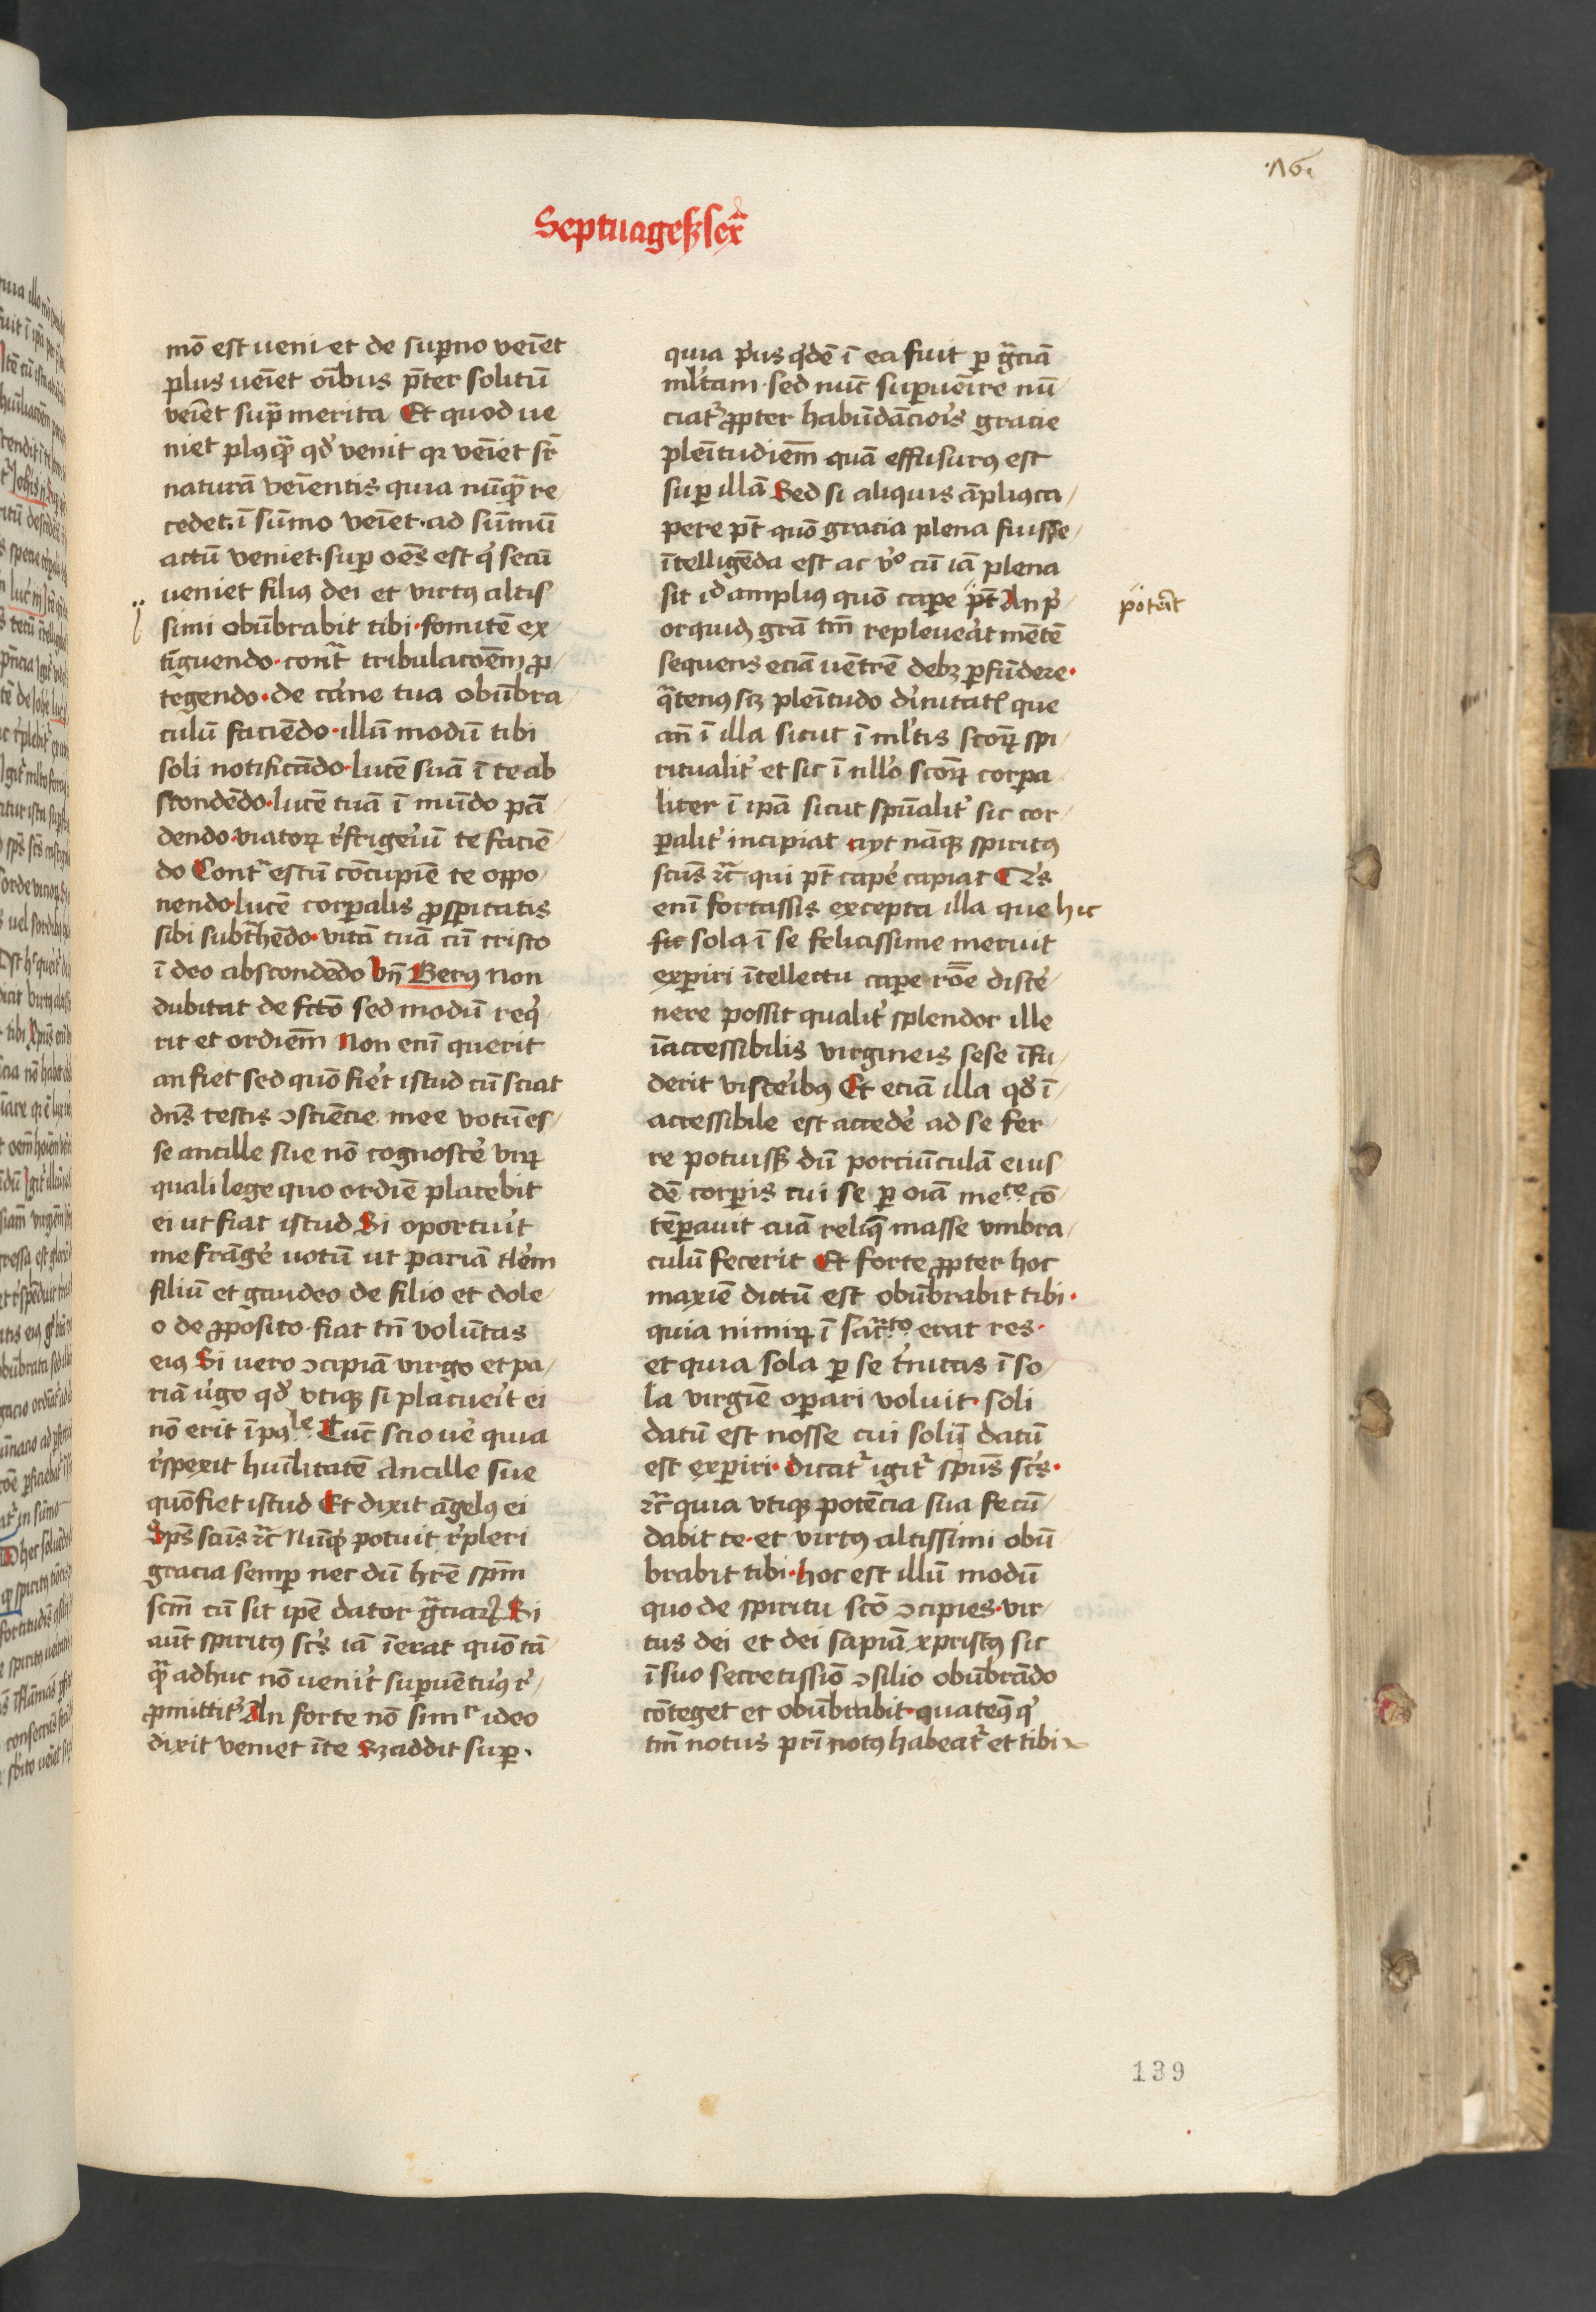 ·16·
Septuagesꝫ sex̄
mō est ueni et de suꝑno veīet
plus ueīet oībus p̄ter solitū
veīet sup̄ merita Et quod ue
niet plꝰqᷓ qd̓ venit qꝛ veīet sc̄
naturā veīentis quia nūqᷓ re
cedet· ī sūmo veīet· ad sūmū
actū veniet· suꝑ oēs est q̓ secū
ueniet filiꝰ dei et virtꝰ altis
simi obūbrabit tibi· fomitē ex
tīguendo· contᷓ tribulacōem ꝓ
tegendo· de carne tua obūbra
culū faciēdo· illū modū tibi
soli notificādo· lucē suā ī te ab
scondēdo· lucē tuā ī mūdo pā
dendo viatoꝝ r̓frigeriū te faciē
do Contᷓ estū cōcupiē te oppo
nendo· lucē corꝑalis ꝓsꝑitatis
sibi subthēdo· vitā tuā cū cristo
ī deo abscondēdo Vn̄ Berꝰ non
dubitat de fcto sed modū req̓
rit et ordiem̄ Non enī querit
an fiet sed quō fiet istud cū sciat
dn̄s testis ꝯsciēcie mee votū es
se ancille sue nō cognosce̓ viꝝ
quali lege quo ordīe placebit
ei ut fiat istud Si oportuit
me frāge̓ uotū ut pariā tlem
filiū et gaudeo de filio et dole
o de ꝓposito· fiat tn̄ volūtas
eiꝰ Si uero ꝯcipiā virgo et pa
riā u̓go qd̓ vtiqꝫ si placueit ei
nō erit īpoˡᵉ Tūc scio ue̓ quia
r̓spexit huīlitatē Ancille sue
quō fiet istud Et dixit āgelꝰ ei
Sps̄ scūs ⁊c̄ Nūqd̓ potuit r̓pleri
gracia semꝑ nec dū hr̄e spm̄
scm̄ cū sit ip̄e dator gᷓciaꝝ Si
aūt spiritꝰ sc̄s iā īerat quō tā
qᷓ adhuc nō uenit suꝑuētuꝰ r̓
ꝓmittit᷑ An forte nō simʳ ideo
dixit veniet ī te Sꝫ addit suꝑ·
quia p̓us q̓dē ī ea fuit ꝑ gᷓciā
ml̓tam· sed nūc suꝑueīre nū
ciat᷑ ꝓpter habūdācio̓is gracie
pleītudiem̄ quā effusurꝰ est
suꝑ illā Sed si aliquis āpliꝰ ca
pere pt̄ quō gracia plena fuisse
ītelligēda est ac v̓o cū iā plena
sit id ampliꝰ quō caꝑe pt̄ An p̓
orquidē gr̄a tm̄ repleueāt mētē
sequens eciā uētrē debꝫ ꝑfūdere·
qᷓtenꝰ scꝫ pleītudo diu̓initatꝭ que
an̄ ī illa sicut ī ml̓tis scōꝝ spi
ritualit̓ et sic ī nll̓o scōꝝ corꝑa
liter ī ipā sicut spūalit̓ sic cor
ꝑalit̓ incipiat ayt nāqꝫ spiritꝰ
scūs ⁊c̄ qui pt̄ cape̓ capiat Q̓s
enī fortassis excepta illa que hic
fit sola ī se felicissime meruit
exꝑiri ītellectu caꝑe rōe disce̓
nere possit qualit̓ splendor ille
īaccessibilis virgineis sese īfu
derit visceribꝰ Et eciā illa qd̓ ī
accessibile est accede̓ ad se fer
re potuissꝫ dū porciūculā eius
dē corꝑis cui se ꝑ oiā meᵗᵉ cō
tēꝑauit cuā reliq̄ masse vmbra
culū fecerit Et forte ꝓpter hoc
maxīe dictū est obūbrabit tibi·
quia nimiꝝ ī sacr̄ᵗᵒ erat res·
et quia sola ꝑ se tr̓nitas ī so
la virgīe oꝑari voluit· soli
datū est nosse cui solū datū
est exꝑiri· dicat᷑ igit᷑ spūs sc̄s·
⁊c̄ quia vtiqꝫ potēcia sua fecū
dabit te· et virtꝰ altissimi obū
brabit tibi· hoc est illū modū
quo de spiritu scō ꝯcipies· vir
tus dei et dei sapiā xpristꝰ sic
ī suo secretissīo ꝯsilio obūbrādo
cōteget et obūbrabit· quatenꝰ q̓
tm̄ notus pr̄i notꝰ habeat᷑ et tibi
poteīt
139